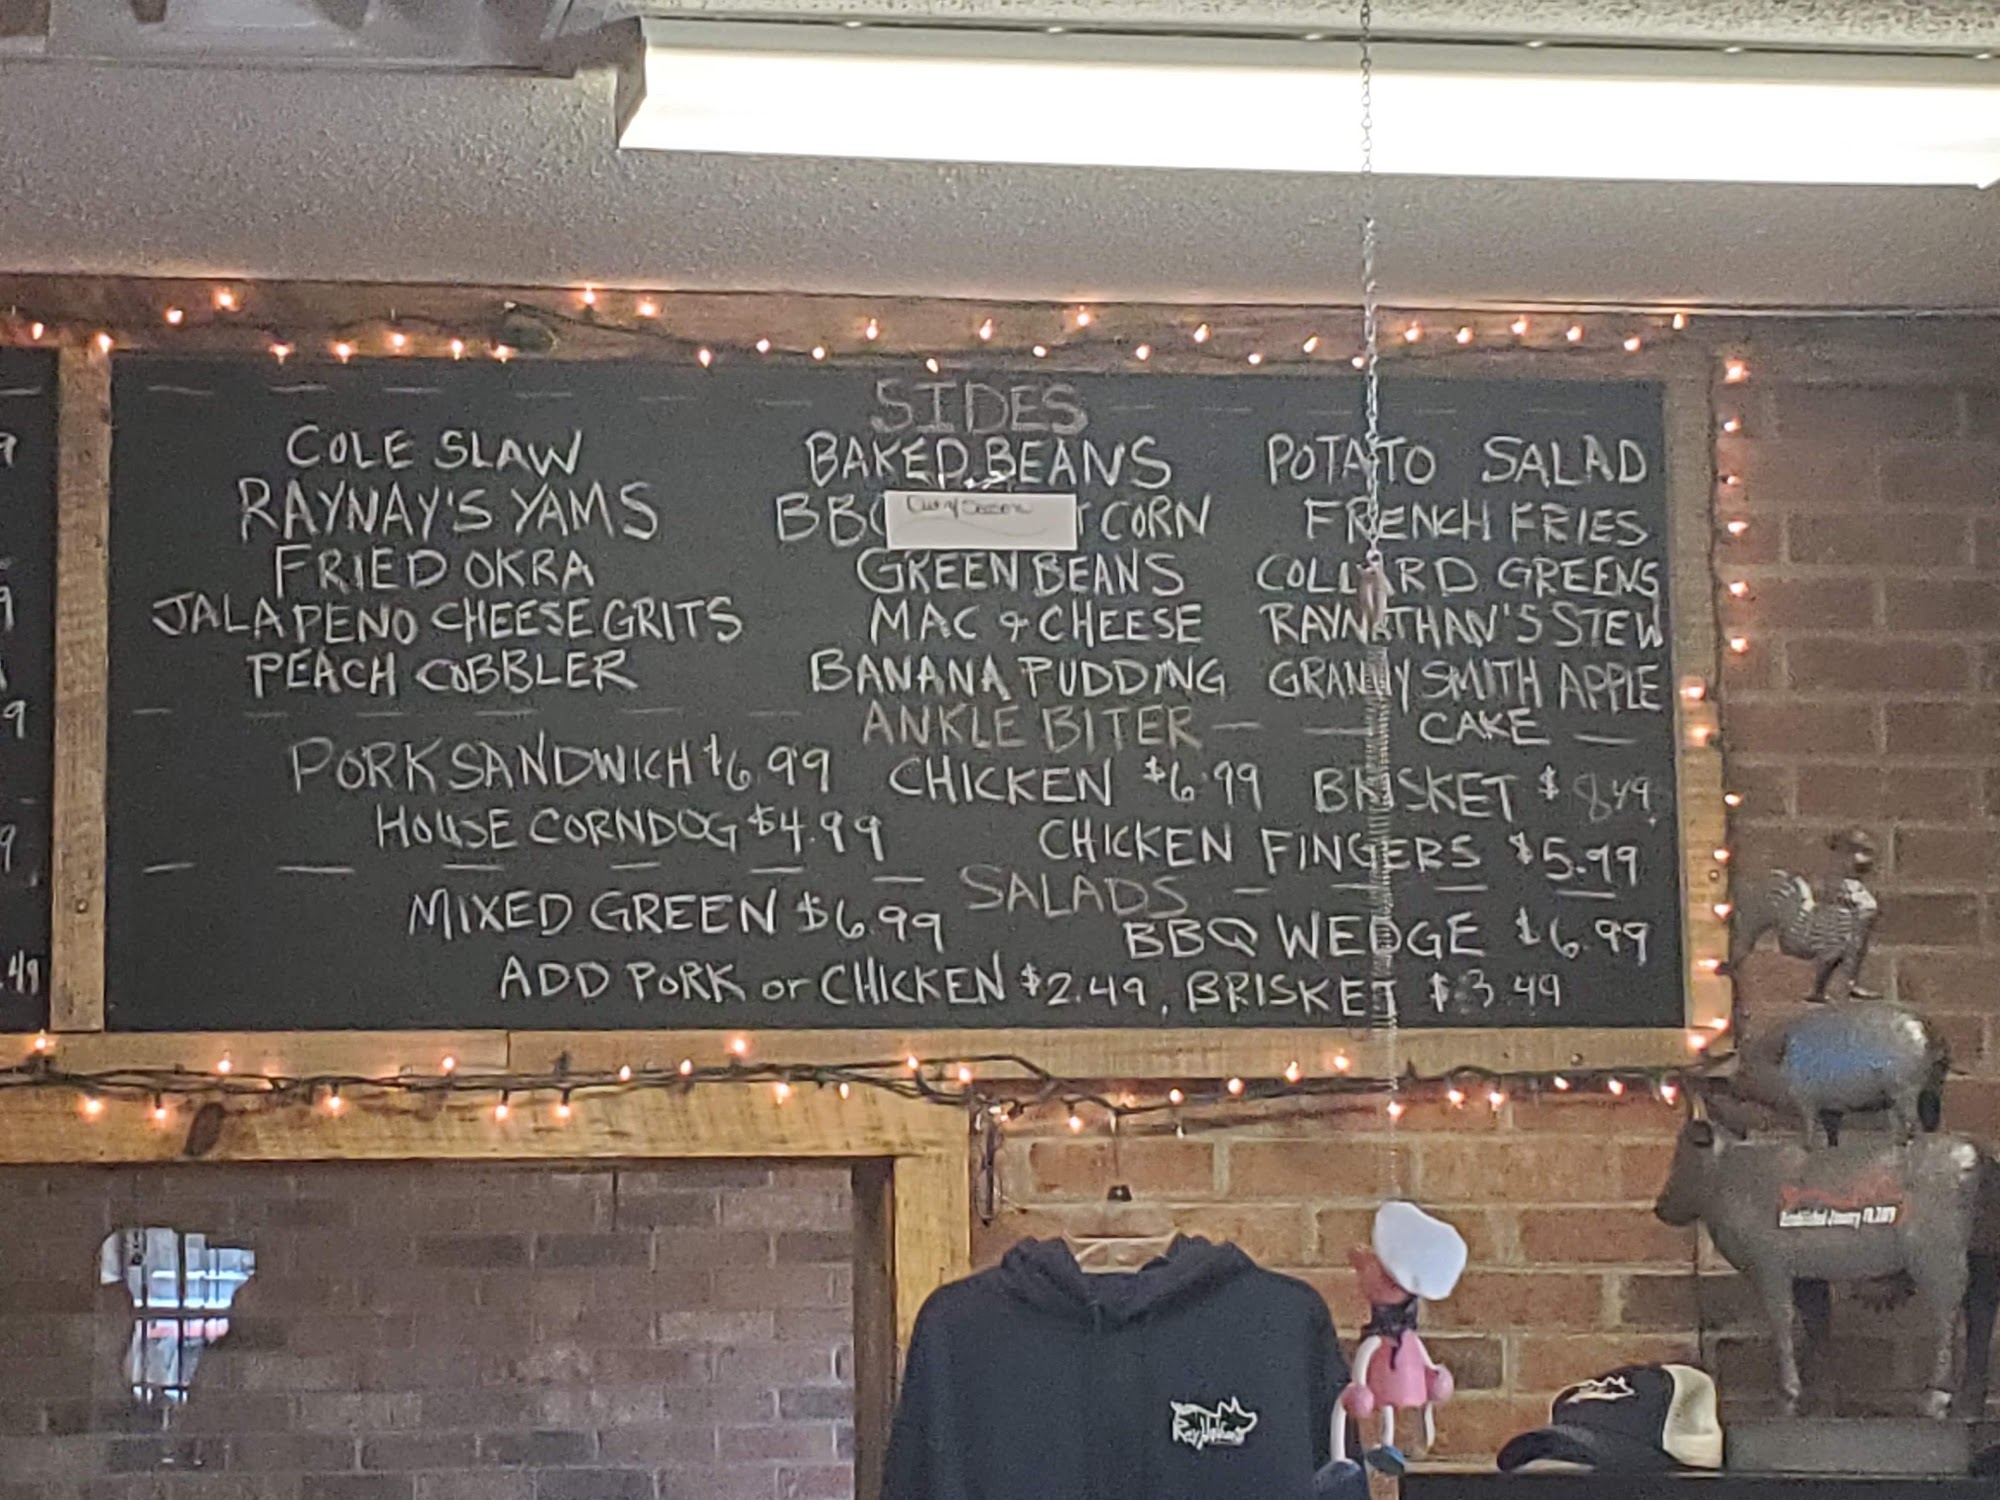 SIDES
COLE SLAW BAKED BEANS POTATO SALAD
RAYNAY'S YAMS BBQ CORN FRENCH FRIES
Out of Season
FRIED OKRA GREEN BEANS COLLARD GREENS
JALAPENO CHEESE GRITS MAC & CHEESE RAYNATHAN'S STEW
PEACH COBBLER BANANA PUDDING GRANNY SMITH APPLE
CAKE
ANKLE BITER
PORK SANDWICH $6.99 CHICKEN $6.99 BRISKET $8.49
HOUSE CORNDOG $4.99 CHICKEN FINGERS $5.99
SALADS
MIXED GREEN $6.99 BBQ WEDGE $6.99
ADD PORK or CHICKEN $2.49, BRISKET $3.49
.49
Established January 19, 2019